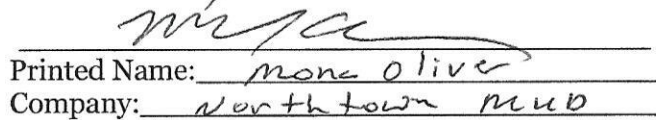 Printed Name: Mona Oliver
Company: Northtown MUD